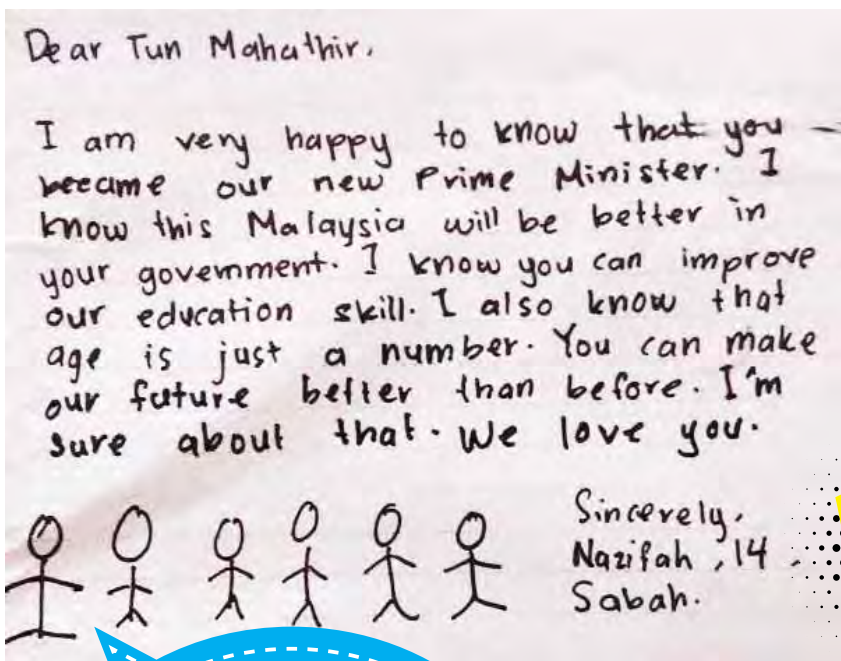 Dear Tun Mahathir.
I am very happy to know that you
became our new Prime Minister. I
know this Malaysia will be better in
your government. I know you can improve
our education skill. I also know that
age is just a number. You can make
our future better than before. I'm
sure about that. We love you.
Sincerely,
Nazifah, 14,
Sabah.